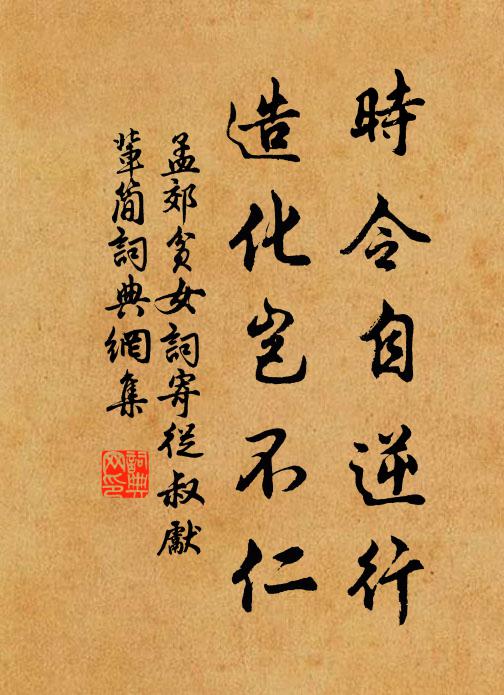 時令自逆行
造化豈不仁
孟郊貧女詞寄從叔獻
輩簡詞典網集
詞典
网印